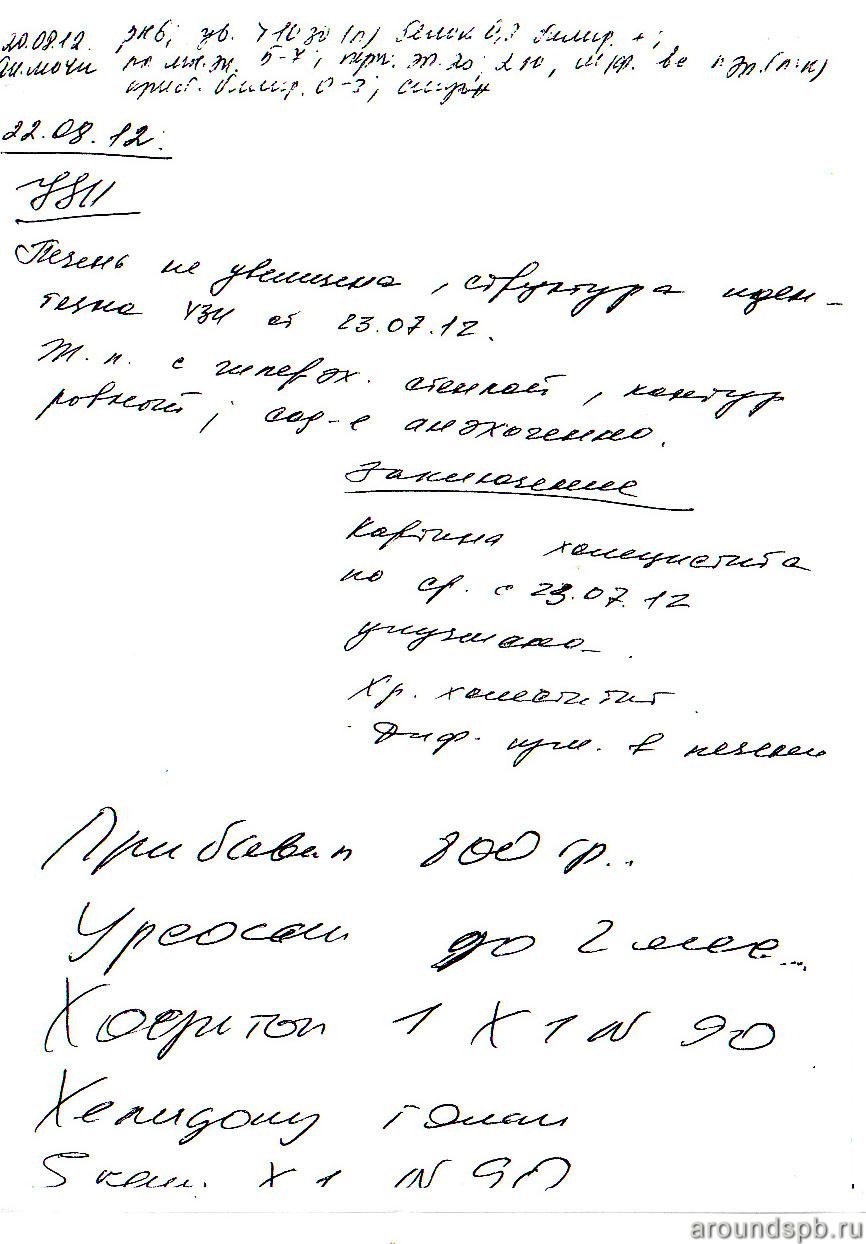 20.08.12. рн6; ув. >1030 (п) белок 0,3 билир. +;
Ан.мочи 5-7;
крист. билир. 0-3;
22.08.12.
УЗИ
Печень не увеличена, структура иден-
тична УЗИ от 23.07.12.
Ж.п. с гиперэх. стенкой, контур
ровный; сод-е анэхогенно.
Заключение
Картина холецистита
по ср. с 23.07.12
улучшено.
Хр. холецистит
Диф. изм. в печени
Прибавил 800 гр..
Урсосан до 2 мес...
Хофитол 1 X 1 N 90
Хелидониум гомак
5 кап. X 1 N 90
aroundspb.ru